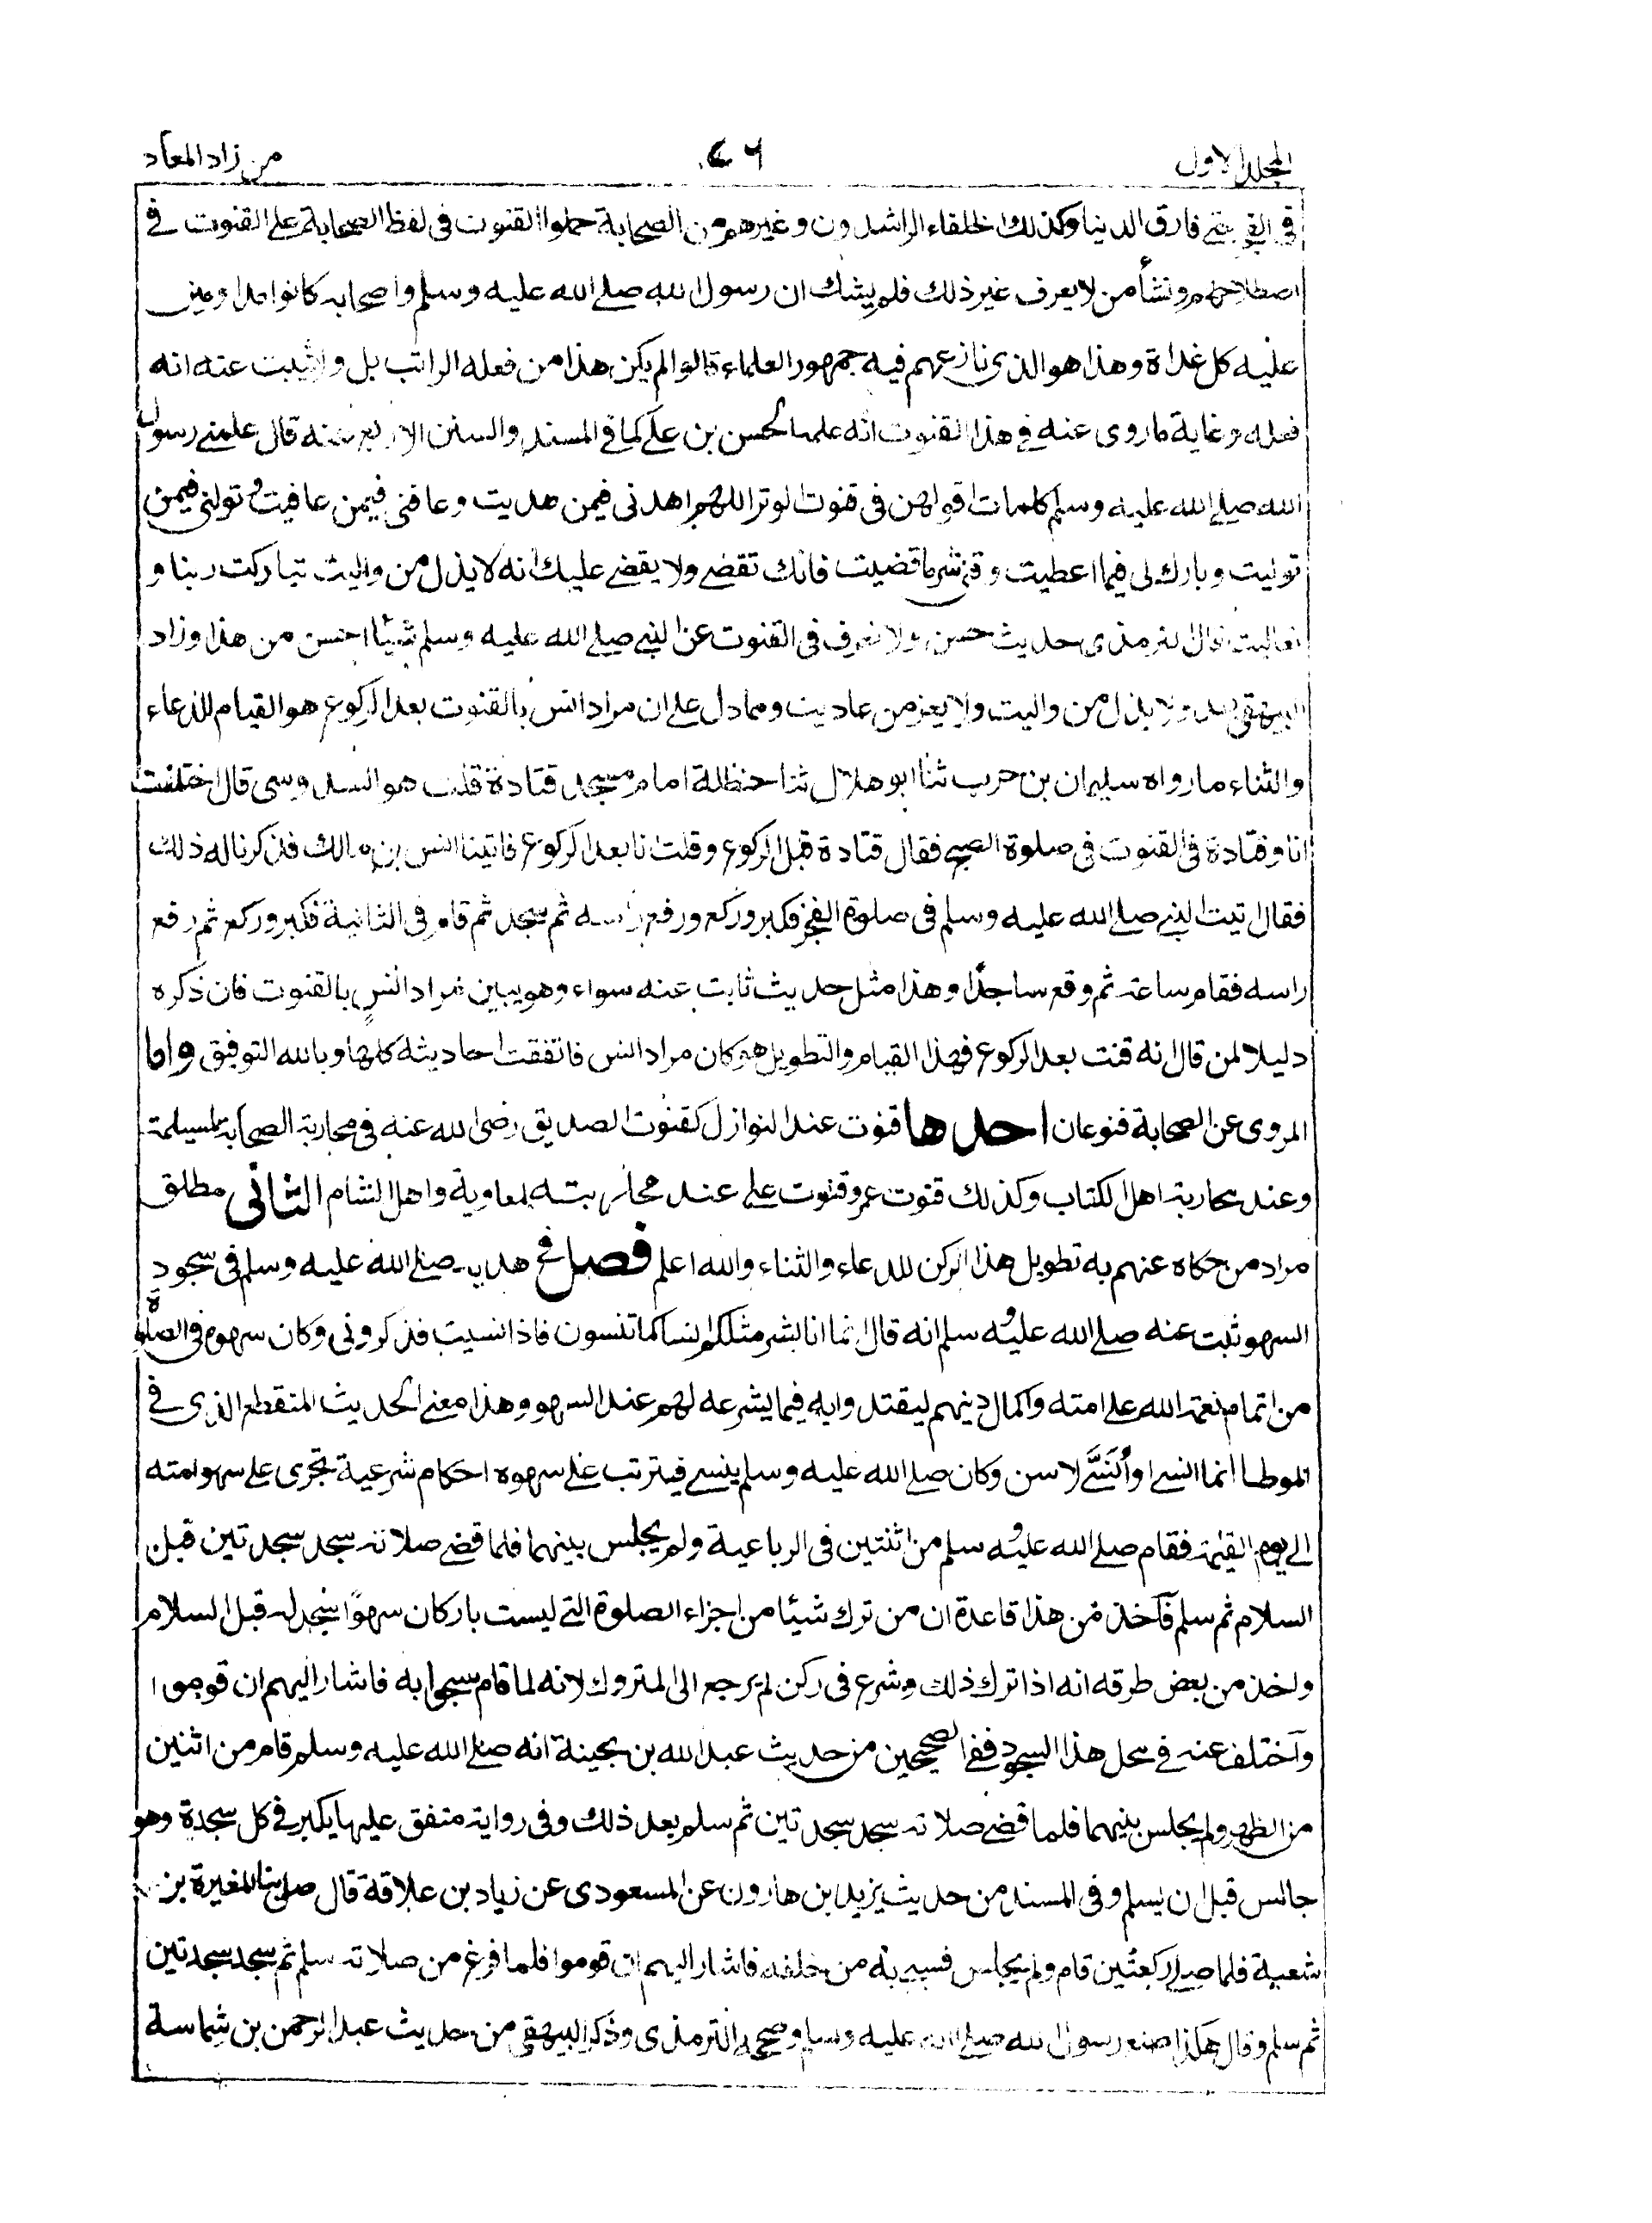 المجلد الاول
٧٦
من زاد المعاد
فى الفجر حتے فارق الدنيا وكذلك الخلفاء الراشدون وغيرهم من الصحابة حملوا القنوت فى لفظ الصحابة علے القنوت فے
اصطلاحهم ونشأ من لا يعرف غير ذلك فلم يشك ان رسول الله صلے الله عليه وسلم واصحابه كانوا مداومين
عليه كل غداة وهذا هو الذى نازعهم فيه جمهور العلماء قالوا لم يكن هذا من فعله الراتب بل ولا يثبت عنه انه
فعله وغاية ما روى عنه فے هذا القنوت انه علمه الحسن بن علے كما فے المسند والسنن الاربع عنه قال علمنے رسول
الله صلے الله عليه وسلم كلمات اقولهن فى قنوت الوتر اللهم اهدنى فيمن هديت وعافنى فيمن عافيت وتولنى فيمن
توليت وبارك لى فيما اعطيت وقنى شر ما قضيت فانك تقضے ولا يقضے عليك انه لا يذل من واليت تباركت ربنا و
تعاليت قال الترمذى حديث حسن ولا نعرف فى القنوت عن النبے صلے الله عليه وسلم شيئا احسن من هذا وزاد
البيهقى بعد ولا يذل من واليت ولا يعز من عاديت ومما دل علے ان مراد انس بالقنوت بعد الركوع هو القيام للدعاء
والثناء ما رواه سليمان بن حرب ثنا ابو هلال ثنا حنظلة امام مسجد قتادة قلت هو السدوسى قال اختلفت
انا وقتادة فى القنوت فى صلوة الصبح فقال قتادة قبل الركوع وقلت انا بعد الركوع فاتينا انس بن مالك فذكرنا له ذلك
فقال اتيت النبے صلے الله عليه وسلم فى صلوة الفجر فكبر وركع ورفع راسه ثم سجد ثم قام فى الثانية فكبر وركع ثم رفع
راسه فقام ساعة ثم وقع ساجدًا وهذا مثل حديث ثابت عنه سواء وهو يبين مراد انس بالقنوت فان ذكره
دليلا لمن قال انه قنت بعد الركوع فهذا القيام والتطويل هو كان مراد انس فاتفقت احاديثه كلها وبالله التوفيق واما
المروى عن الصحابة فنوعان احدها قنوت عند النوازل كقنوت الصديق رضى الله عنه فى محاربة الصحابة لمسيلمة
وعند محاربة اهل الكتاب وكذلك قنوت عمر وقنوت علے عند محاربته لمعاوية واهل الشام الثانى مطلق
مراد من حكاه عنهم به تطويل هذا الركن للدعاء والثناء والله اعلم فصل فے هديه صلے الله عليه وسلم فى سجود
السهو ثبت عنه صلے الله عليه وسلم انه قال انما انا بشر مثلكم انسا كما تنسون فاذا نسيت فذكرونى وكان سهوه فى الصلوة
من اتمام نعمة الله علے امته واكمال دينهم ليقتدوا به فيما يشرعه لهم عند السهو وهذا معنے الحديث المنقطع الذى فے
الموطا انما انسے او اُنَسَّے لاسن وكان صلے الله عليه وسلم ينسے فيترتب علے سهوه احكام شرعية تجرى علے سهو امته
الے يوم القيمة فقام صلے الله عليه وسلم من اثنتين فى الرباعية ولم يجلس بينهما فلما قضے صلاته سجد سجدتين قبل
السلام ثم سلم فآخذ من هذا قاعدة ان من ترك شيئا من اجزاء الصلوة التے ليست باركان سهوًا سجد له قبل السلام
واخذ من بعض طرقه انه اذا ترك ذلك وشرع فى ركن لم يرجع الى المتروك لانه لما قام سبحوا به فاشار اليهم ان قوموا
وآختلف عنه فے محل هذا السجود ففے الصحيحين من حديث عبد الله بن بحينة انه صلے الله عليه وسلم قام من اثنين
من الظهر ولم يجلس بينهما فلما قضے صلاته سجد سجدتين ثم سلم بعد ذلك وفى رواية متفق عليها يكبر فے كل سجدة وهو
جالس قبل ان يسلم وفى المسند من حديث يزيد بن هارون عن المسعودى عن زياد بن علاقة قال صلے بنا المغيرة بن
شعبة فلما صلے ركعتين قام ولم يجلس فسبح به من خلفه فاشار اليهم ان قوموا فلما فرغ من صلاته سلم ثم سجد سجدتين
ثم سلم وقال هكذا صنع رسول الله صلے الله عليه وسلم وصححه الترمذى وذكر البيهقى من حديث عبد الرحمن بن شماسة